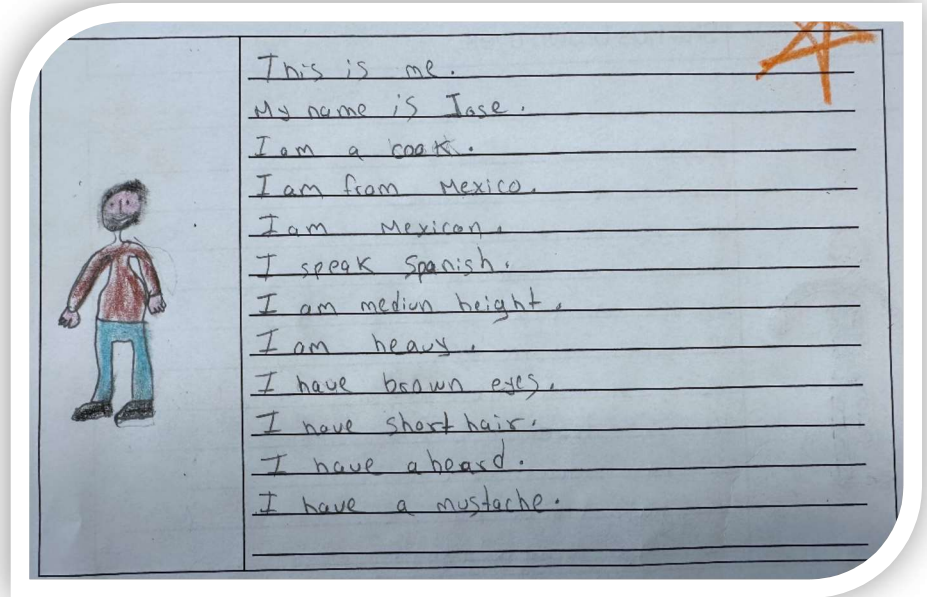 This is me.
My name is Jose.
I am a cook.
I am from Mexico.
I am Mexican.
I speak Spanish.
I am mediun height.
I am heavy.
I have brown eyes.
I have short hair.
I have a beard.
I have a mustache.